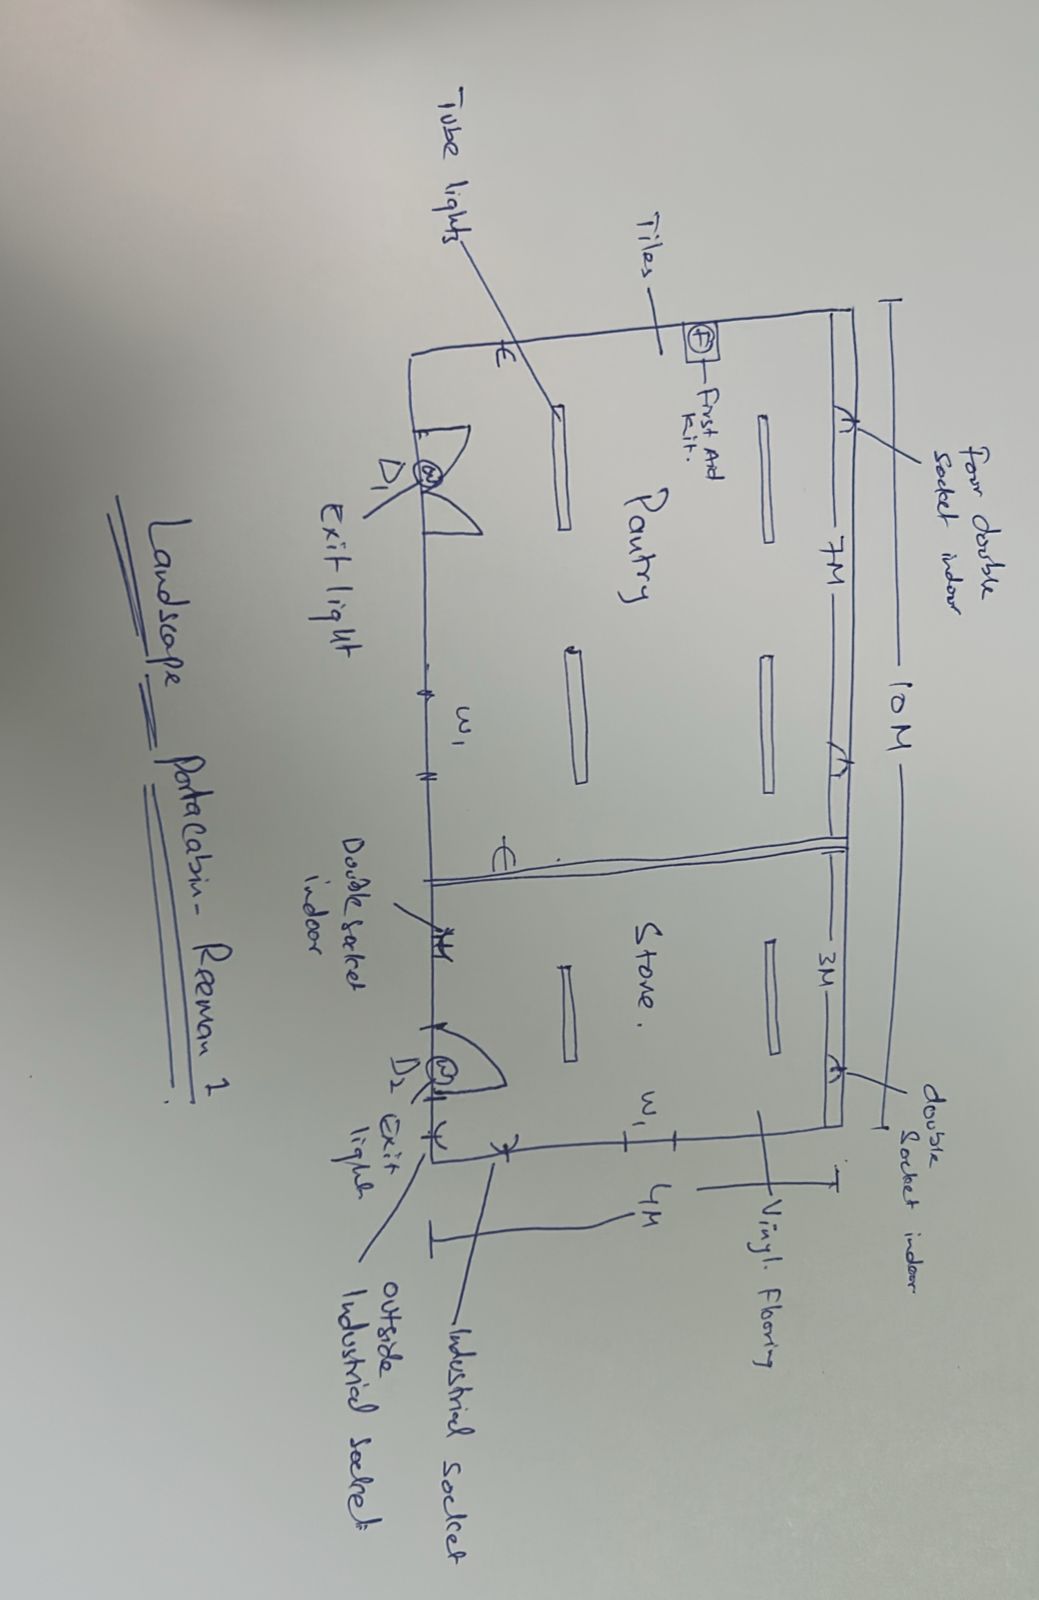 10M
four double
socket indoor
double
socket indoor
7M
3M
Tiles
First Aid
Kit.
Tube lights
Pantry
Store.
W1
W1
Vinyl. Flooring
4M
D1
Exit light
Double socket
indoor
D2
Exit
light
Industrial socket
outside
Industrial socket
Landscape Portacabin - Reeman 1